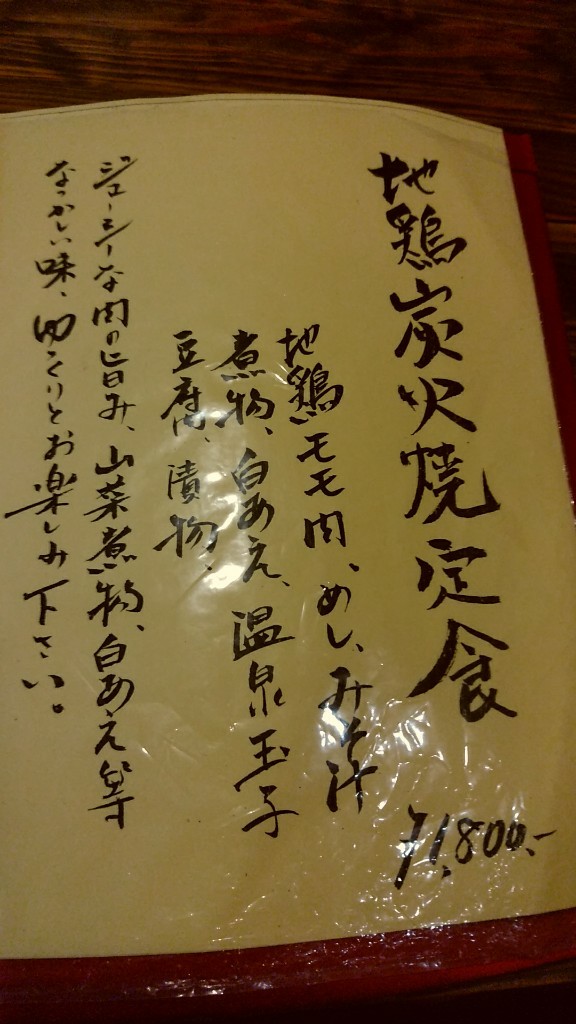 地鶏炭火焼定食
¥1,800.-
地鶏モモ肉、めし、みそ汁
煮物、白あえ、温泉玉子
豆腐、漬物、
ジューシーな肉の旨み、山菜煮物、白あえ等
なつかしい味、ゆっくりとお楽しみ下さい。